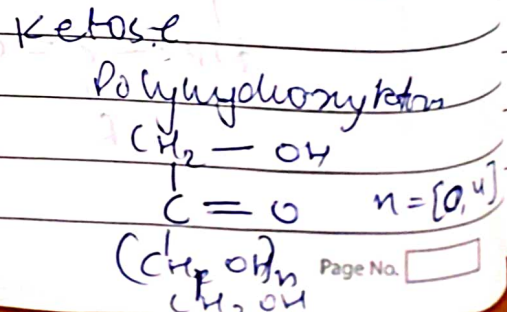 Ketose
Polyhydroxyketon
CH2 — OH
C = O n = [0,4]
(CHOH)n Page No.
CH2 OH